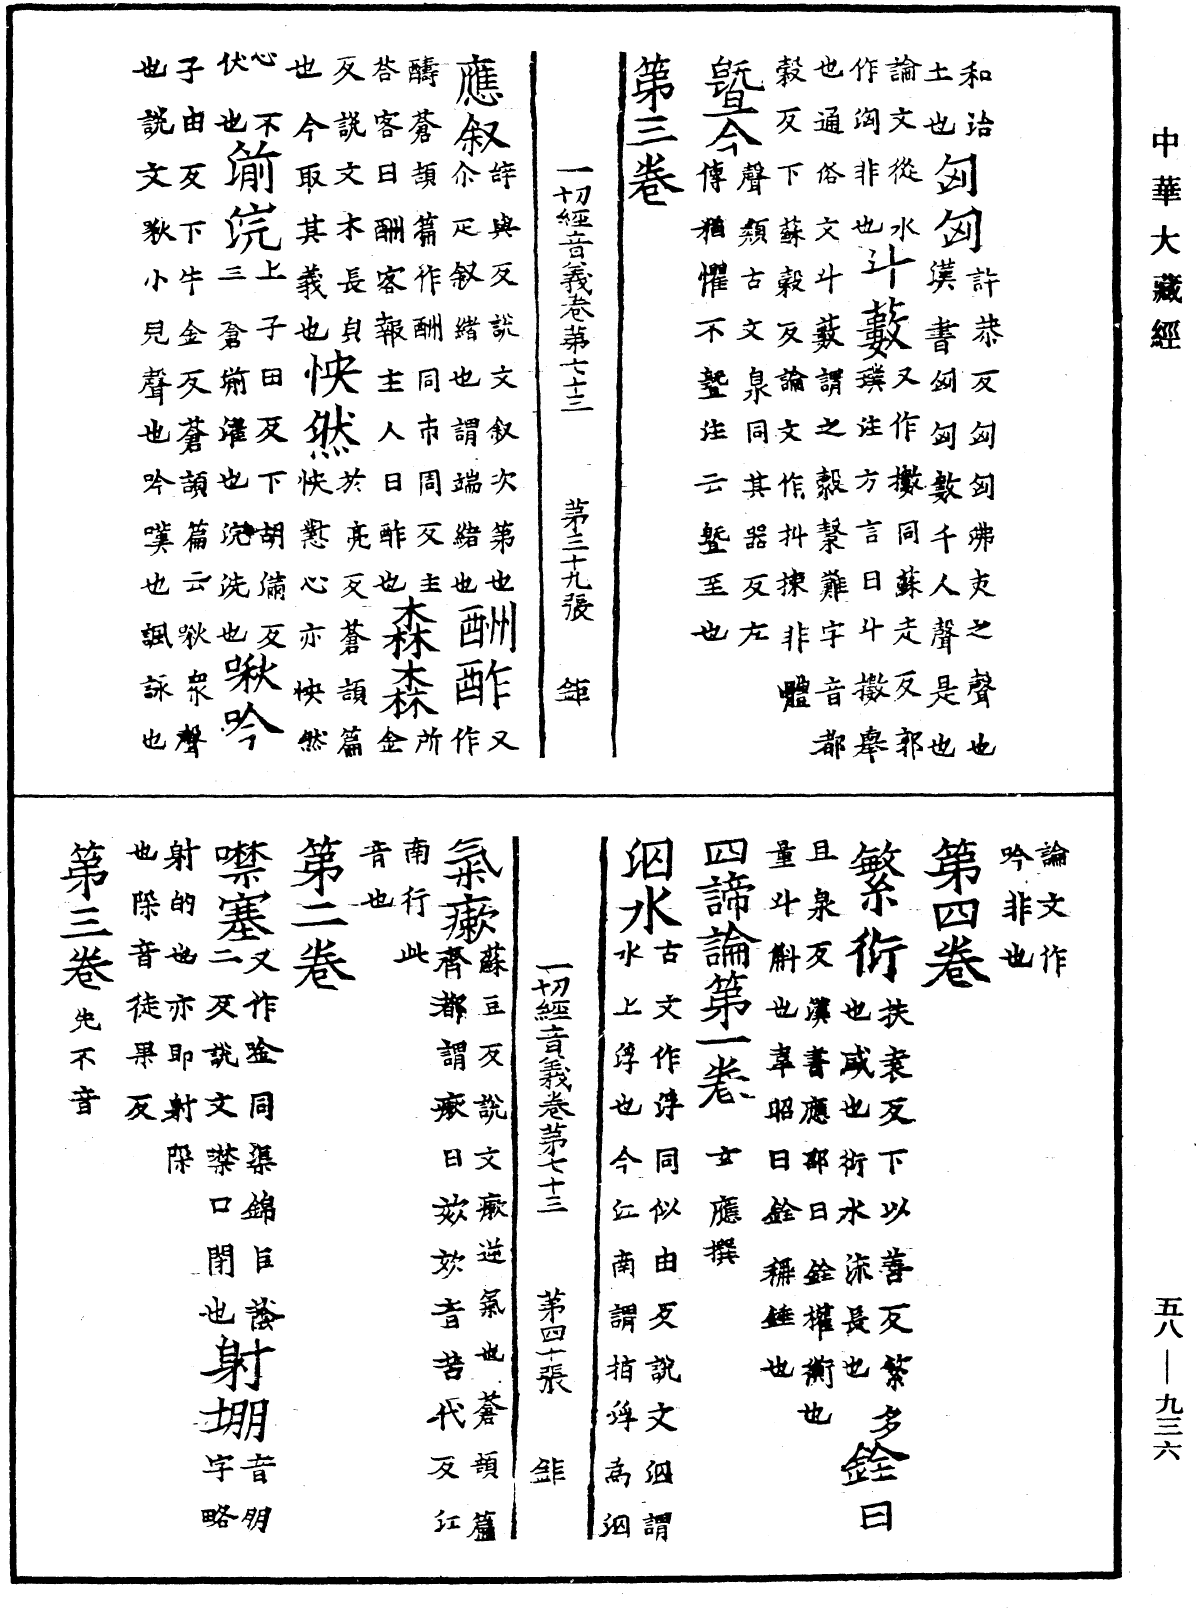 中華大藏經
和治
土也
匈匈
許恭反匈匈沸亂之聲也
漢書匈匈數千人聲是也
論文從水
作洶非也
斗藪
又作擻同蘇走反郭
璞注方言曰斗擻舉
也通俗文斗藪謂之𣫍㲉難字音都
穀反下蘇穀反論文作抖揀非體
暨今
聲類古文泉同其器反左
傳猶懼不暨注云暨至也
第三卷
一切經音義卷第七十三 第三十九張 鉅
應叙
辞與反說文叙次第也
尒疋叙緒也謂端緒也
酬酢
又作
醻蒼頡篇作酬同市周反主
荅客曰酬客報主人曰酢也
森森
所金
反說文木長皃也
今取其義也
怏然
於亮反蒼頡篇
怏懟心亦怏然
心不
伏也
湔浣
上子田反下胡滿反
三蒼湔濯也浣洗也
啾吟
子由反下牛金反蒼頡篇云啾衆聲
也說文啾小兒聲也吟嘆也諷詠也
論文作
吟非也
第四卷
繁衍
扶袁反下以善反繁多
也咸也衍水流長也
銓曰
且泉反漢書應邵曰銓權衡也
量斗斛也韋昭曰銓稱錘也
四諦論第一卷 玄應撰
泅水
古文作汓同似由反說文泅謂
水上浮也今江南謂拍浮為泅
一切經音義卷第七十三 第四十張 鉅
氣瘶
蘇豆反說文瘶逆氣也蒼頡篇
齊都謂瘶曰欬欬音苦代反江
南行此
音也
第二卷
噤塞
又作唫同渠錦巨蔭
二反說文噤口閉也
射堋
音朋
字略
射的也亦即射垛
也垛音徒果反
第三卷 先不音
五八—九三六